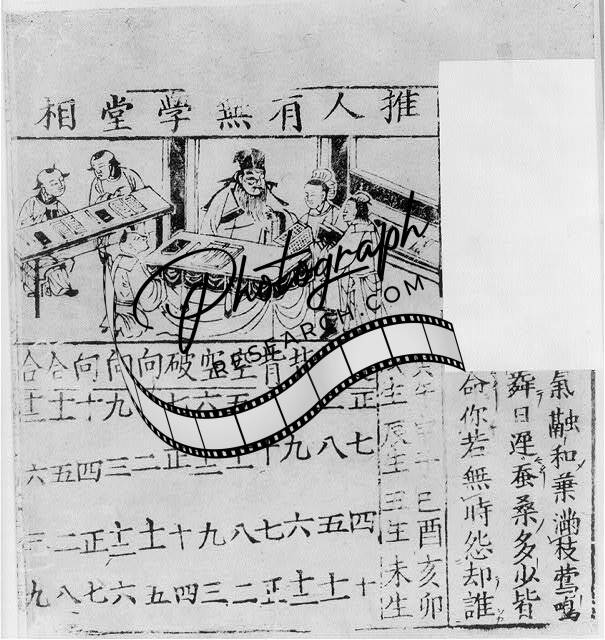 推人有無学堂相
氣融和葉滿枝鶯鳴
舜日遲蚕桑多少皆
命你若無時怨却誰
子巳酉亥卯
生辰生丑生未生
破向向向合合
正二五六七九十十一十二
七八九十十一十二正二三四五六
四五六七八九十十一十二正二三
十十一十二正二三四五六七八九
Photograph
RESEARCH.COM